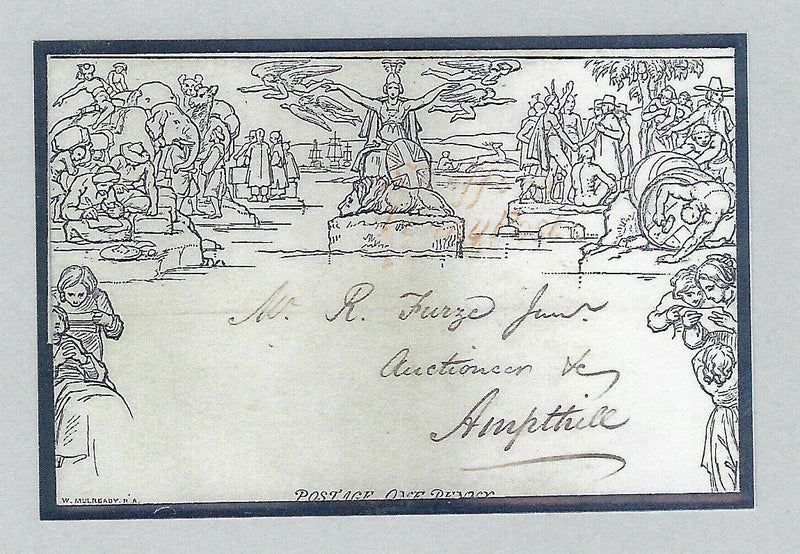 Mr. R. Furze Junr.
Auctioneer &c
Ampthill
W. MULREADY. R.A.
POSTAGE ONE PENNY